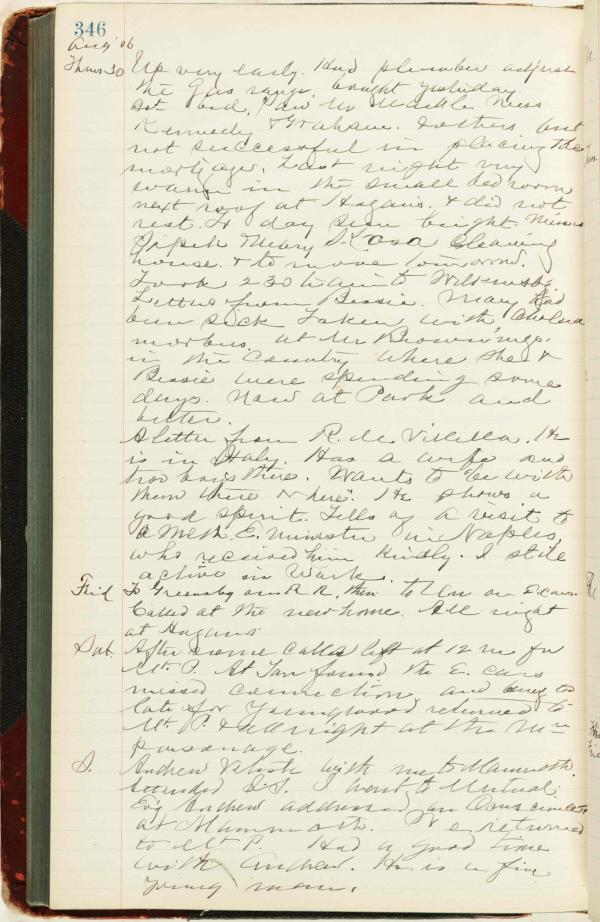 346
Aug 06
Thurs 30 Up very early. Had plumber adjust
the Gas range, bought yesterday.
Saw Mr Mackle Miss
Kennedy & Graham. & others but
not successful in placing the
mortgage. Last night very
warm in the small bed room
next roof at Hagans. & did not
rest. To day bright. Misses
Mary cleaning
house. & to move tomorrow.
Took 2 30 train to Wilkinsbg
Letters from Bessie. Mary had
been sick taken with Cholera
morbus, at Mr Brownings.
in the Country where she &
Bessie were spending some
days. Now at Park and
better.
A letter from R. de. Villella. He
is in Italy. Has a wife and
two boys there. Wants to be with
them there or "here". He shows a
good spirit. Tells of a visit to
a Meth. E. minister in Naples,
who received him kindly. I still
active in Work.
Frid To Greensbg on R R, then to Un on E. cars.
Called at the new home. All night
at Hagans
Sat. After some calls left at 12 m for
Mt P. At found the E. cars
missed connection and being too
late for Youngwood returned to
Mt. P. & all night at the
parsonage.
S. Andrew with me to Mammoth.
Attended S.S. I went to Mutual
Andrew addressed an
at Mammoth. We returned
to Mt P. Had a good time
with Andrew. He is a fine
young man.